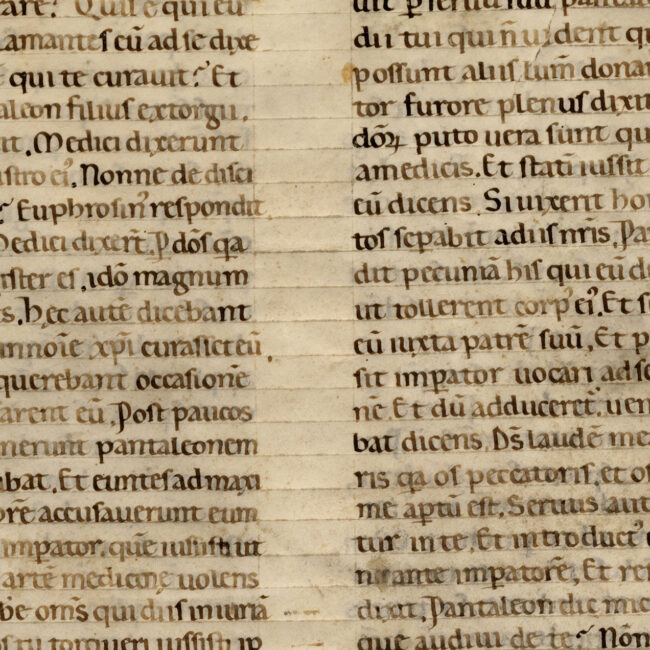 are? Quis e qui eu
amantes eū ad se dixe
qui te curauit? Et
aleon filius extorgii.
it. Medici dixerunt
stro ei'. Nonne de disci
? Euphrosin' respondit
Medici dixert. P dōs qa
ister es, idō magnum
s. hec autē dicebant
in noīe xpī curasset eū.
querebant occasionē
arent eū. Post paucos
nerunt pantaleonem
bat. Et euntes ad maxi
orē accusauerunt eum
impator. quē iussisti ut
artē medicine uolens
bē oms qui diis iniuriā
torqueri iussisti ip
dii tui qui n̄ uident
possunt aliis lum̄ donar
tor furore plenus dixit
puto uera sunt
a medicis. Et statī iussit
eū dicens. Si uixerit ho
tos sepabit a diis nr̄is. Pa
dit pecuniā his qui eū d
ut tollerent corp' ei'. Et s
eū iuxta patrē suū. Et p
sit impator uocari ad se
nē. Et dū adduceret. uen
bat dicens. Ds̄ laudē me
ris qa os peccatoris. et os
me aptū est. Seruus aut
tur in te. Et introduct'
impatorē. Et re
dixit. Pantaleon dic mic
que audiui de te? Nōn